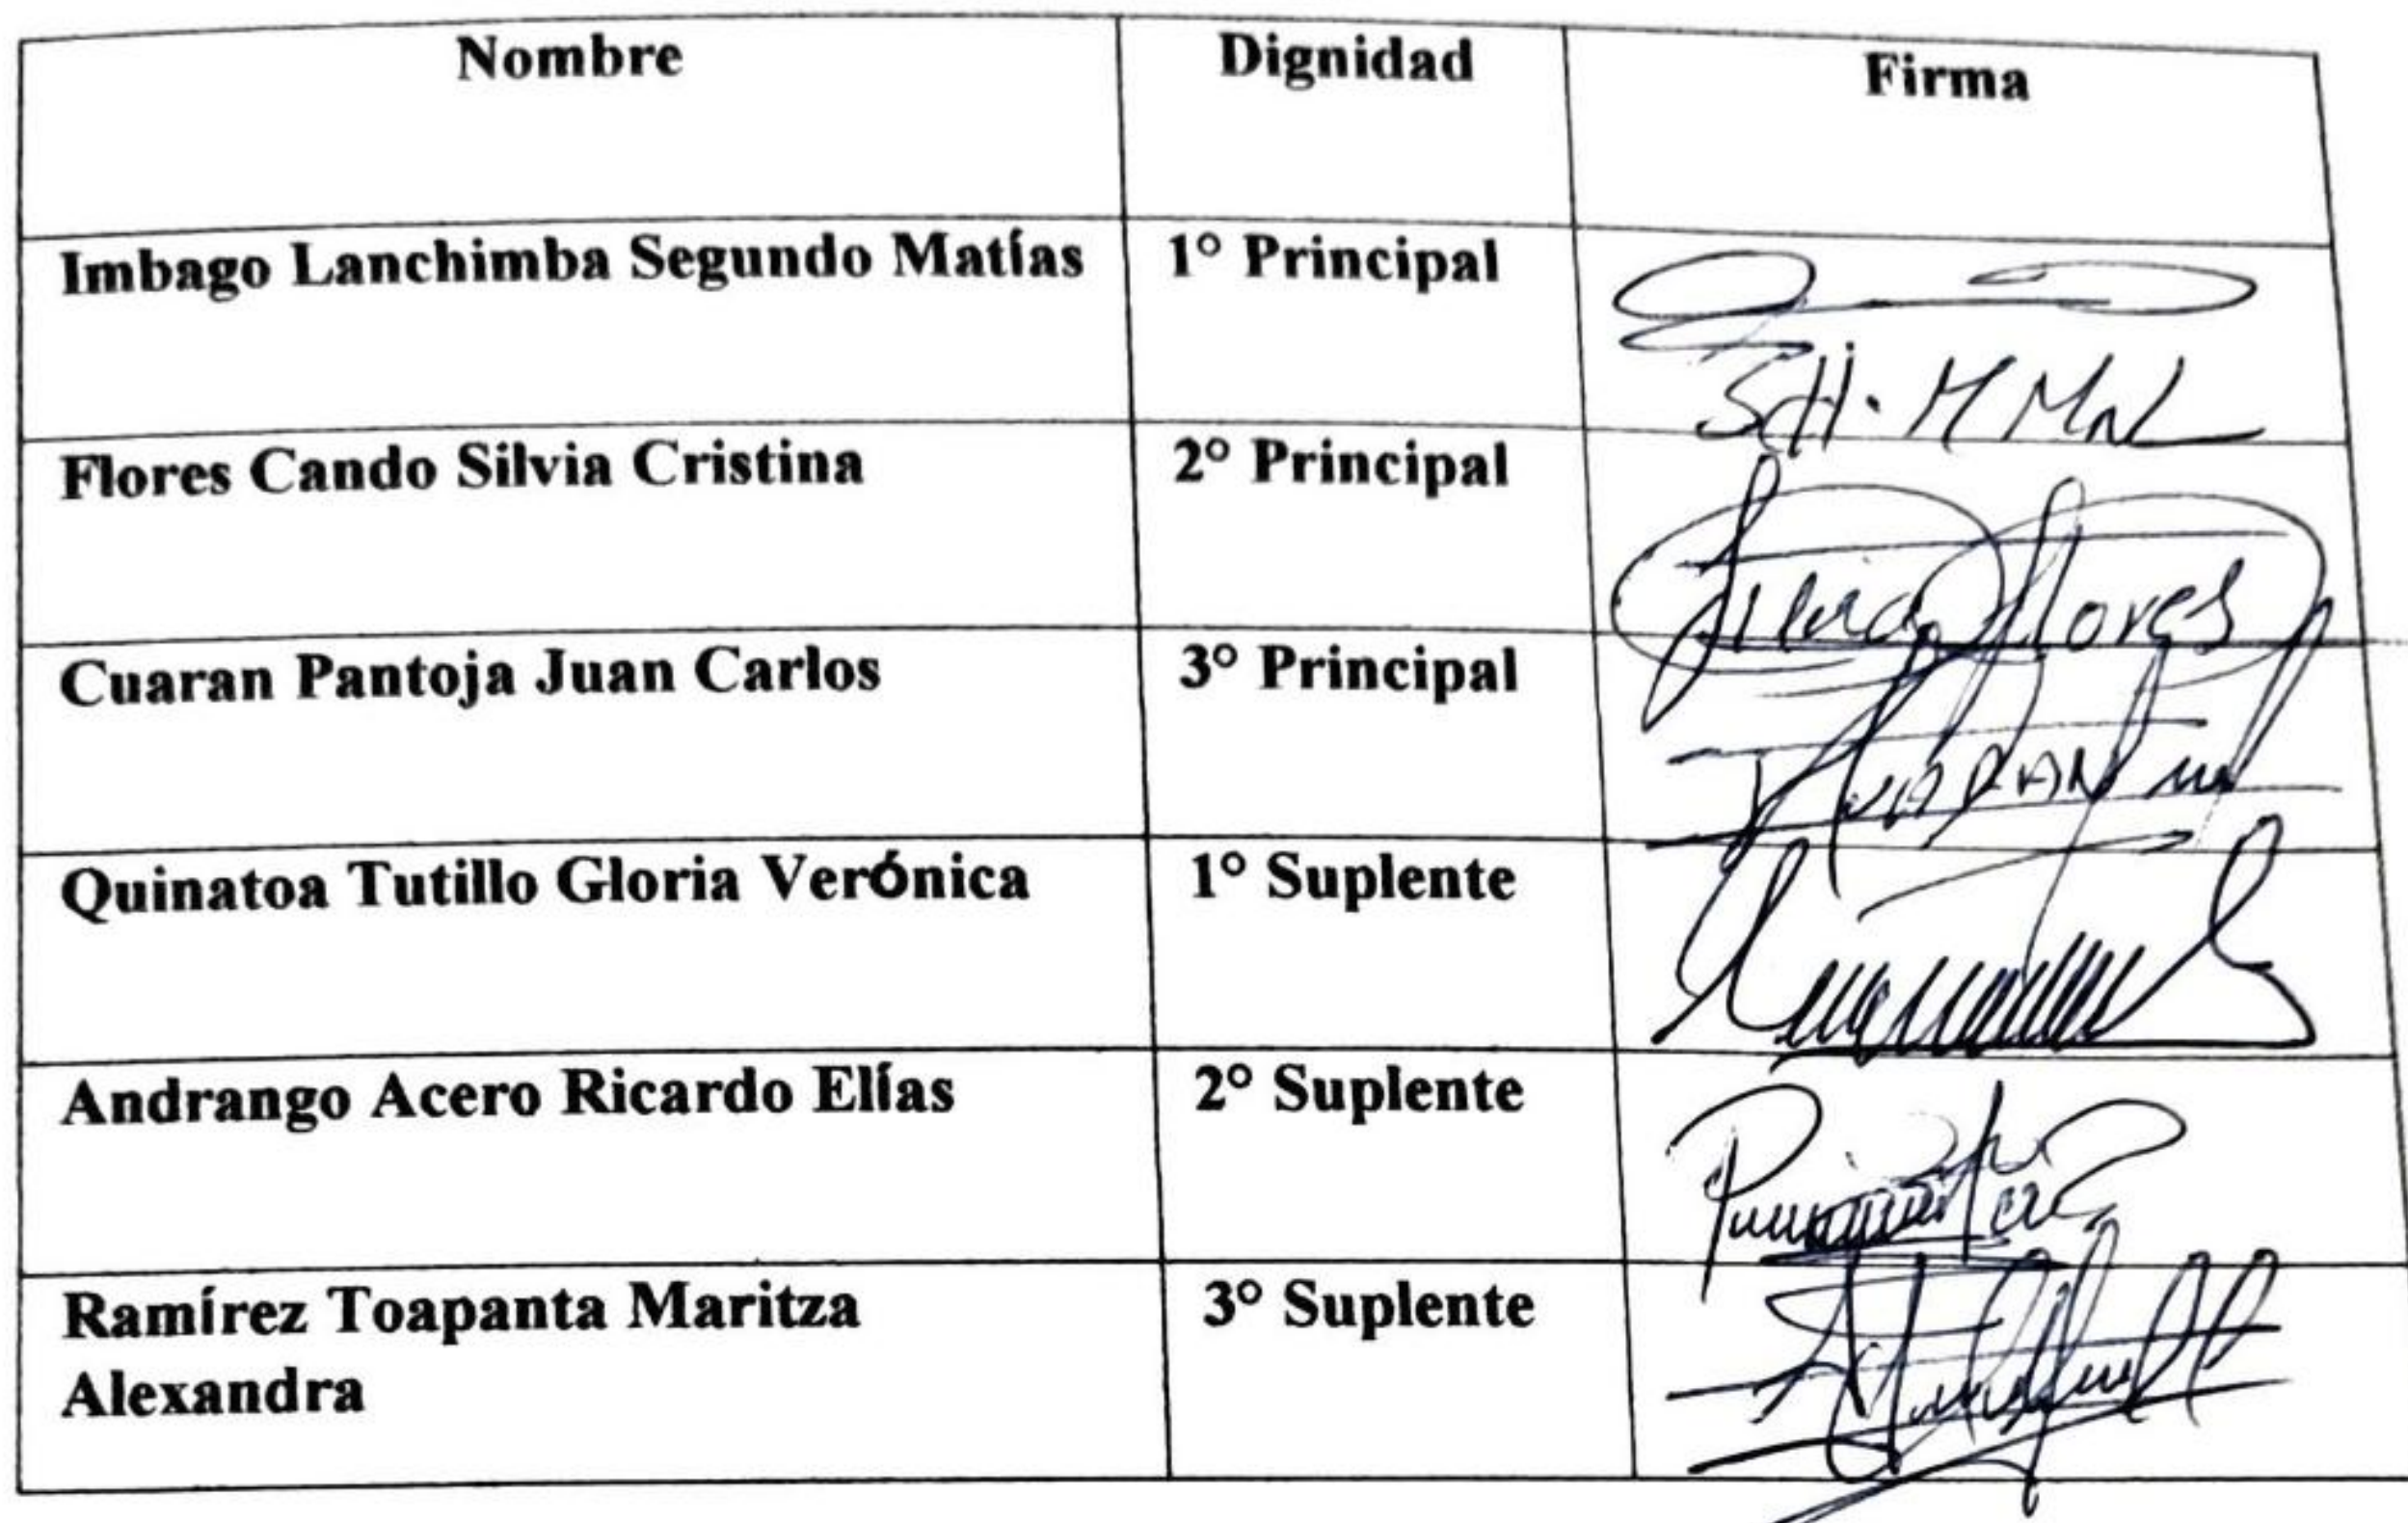 Nombre Dignidad Firma
Imbago Lanchimba Segundo Matías 1° Principal
Flores Cando Silvia Cristina 2° Principal
Silvia Flores
Cuaran Pantoja Juan Carlos 3° Principal
Quinatoa Tutillo Gloria Verónica 1° Suplente
Andrango Acero Ricardo Elías 2° Suplente
Ramírez Toapanta Maritza 3° Suplente
Alexandra